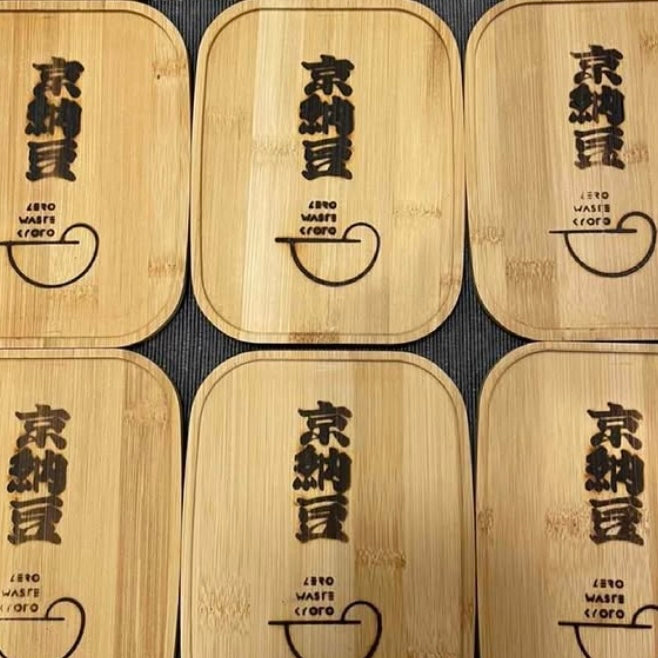 京納豆
ZERO
WASTE
KYOTO
京納豆
ZERO
WASTE
KYOTO
京納豆
ZERO
WASTE
KYOTO
京納豆
ZERO
WASTE
KYOTO
京納豆
ZERO
WASTE
KYOTO
京納豆
ZERO
WASTE
KYOTO